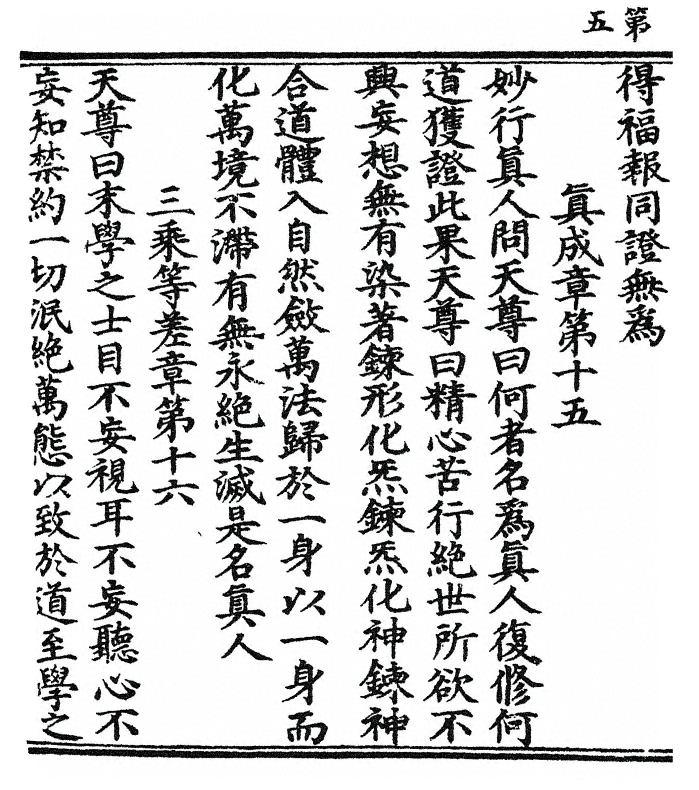 第五
得福報同證無爲
眞成章第十五
妙行眞人問天尊曰何者名爲眞人復修何
道獲證此果天尊曰精心苦行絶世所欲不
興妄想無有染著鍊形化炁鍊炁化神鍊神
合道體入自然斂萬法歸於一身以一身而
化萬境不滯有無永絶生滅是名眞人
三乘等差章第十六
天尊曰末學之士目不妄視耳不妄聽心不
妄知禁約一切泯絶萬態以致於道至學之